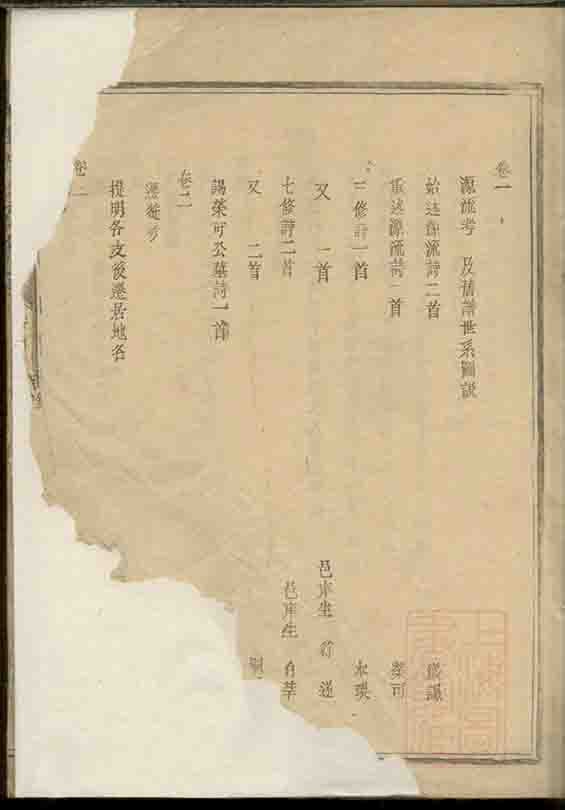 卷一
源流考 及舊譜世系圖說
始述源流詩二首
重述源流詩一首 榮可
三修詩一首 永瑛
又 一首 邑庠生
七修詩二首 邑庠生
又 二首
謁榮可公墓詩一首
卷二
遷徙考
提明各支後遷居地名
卷